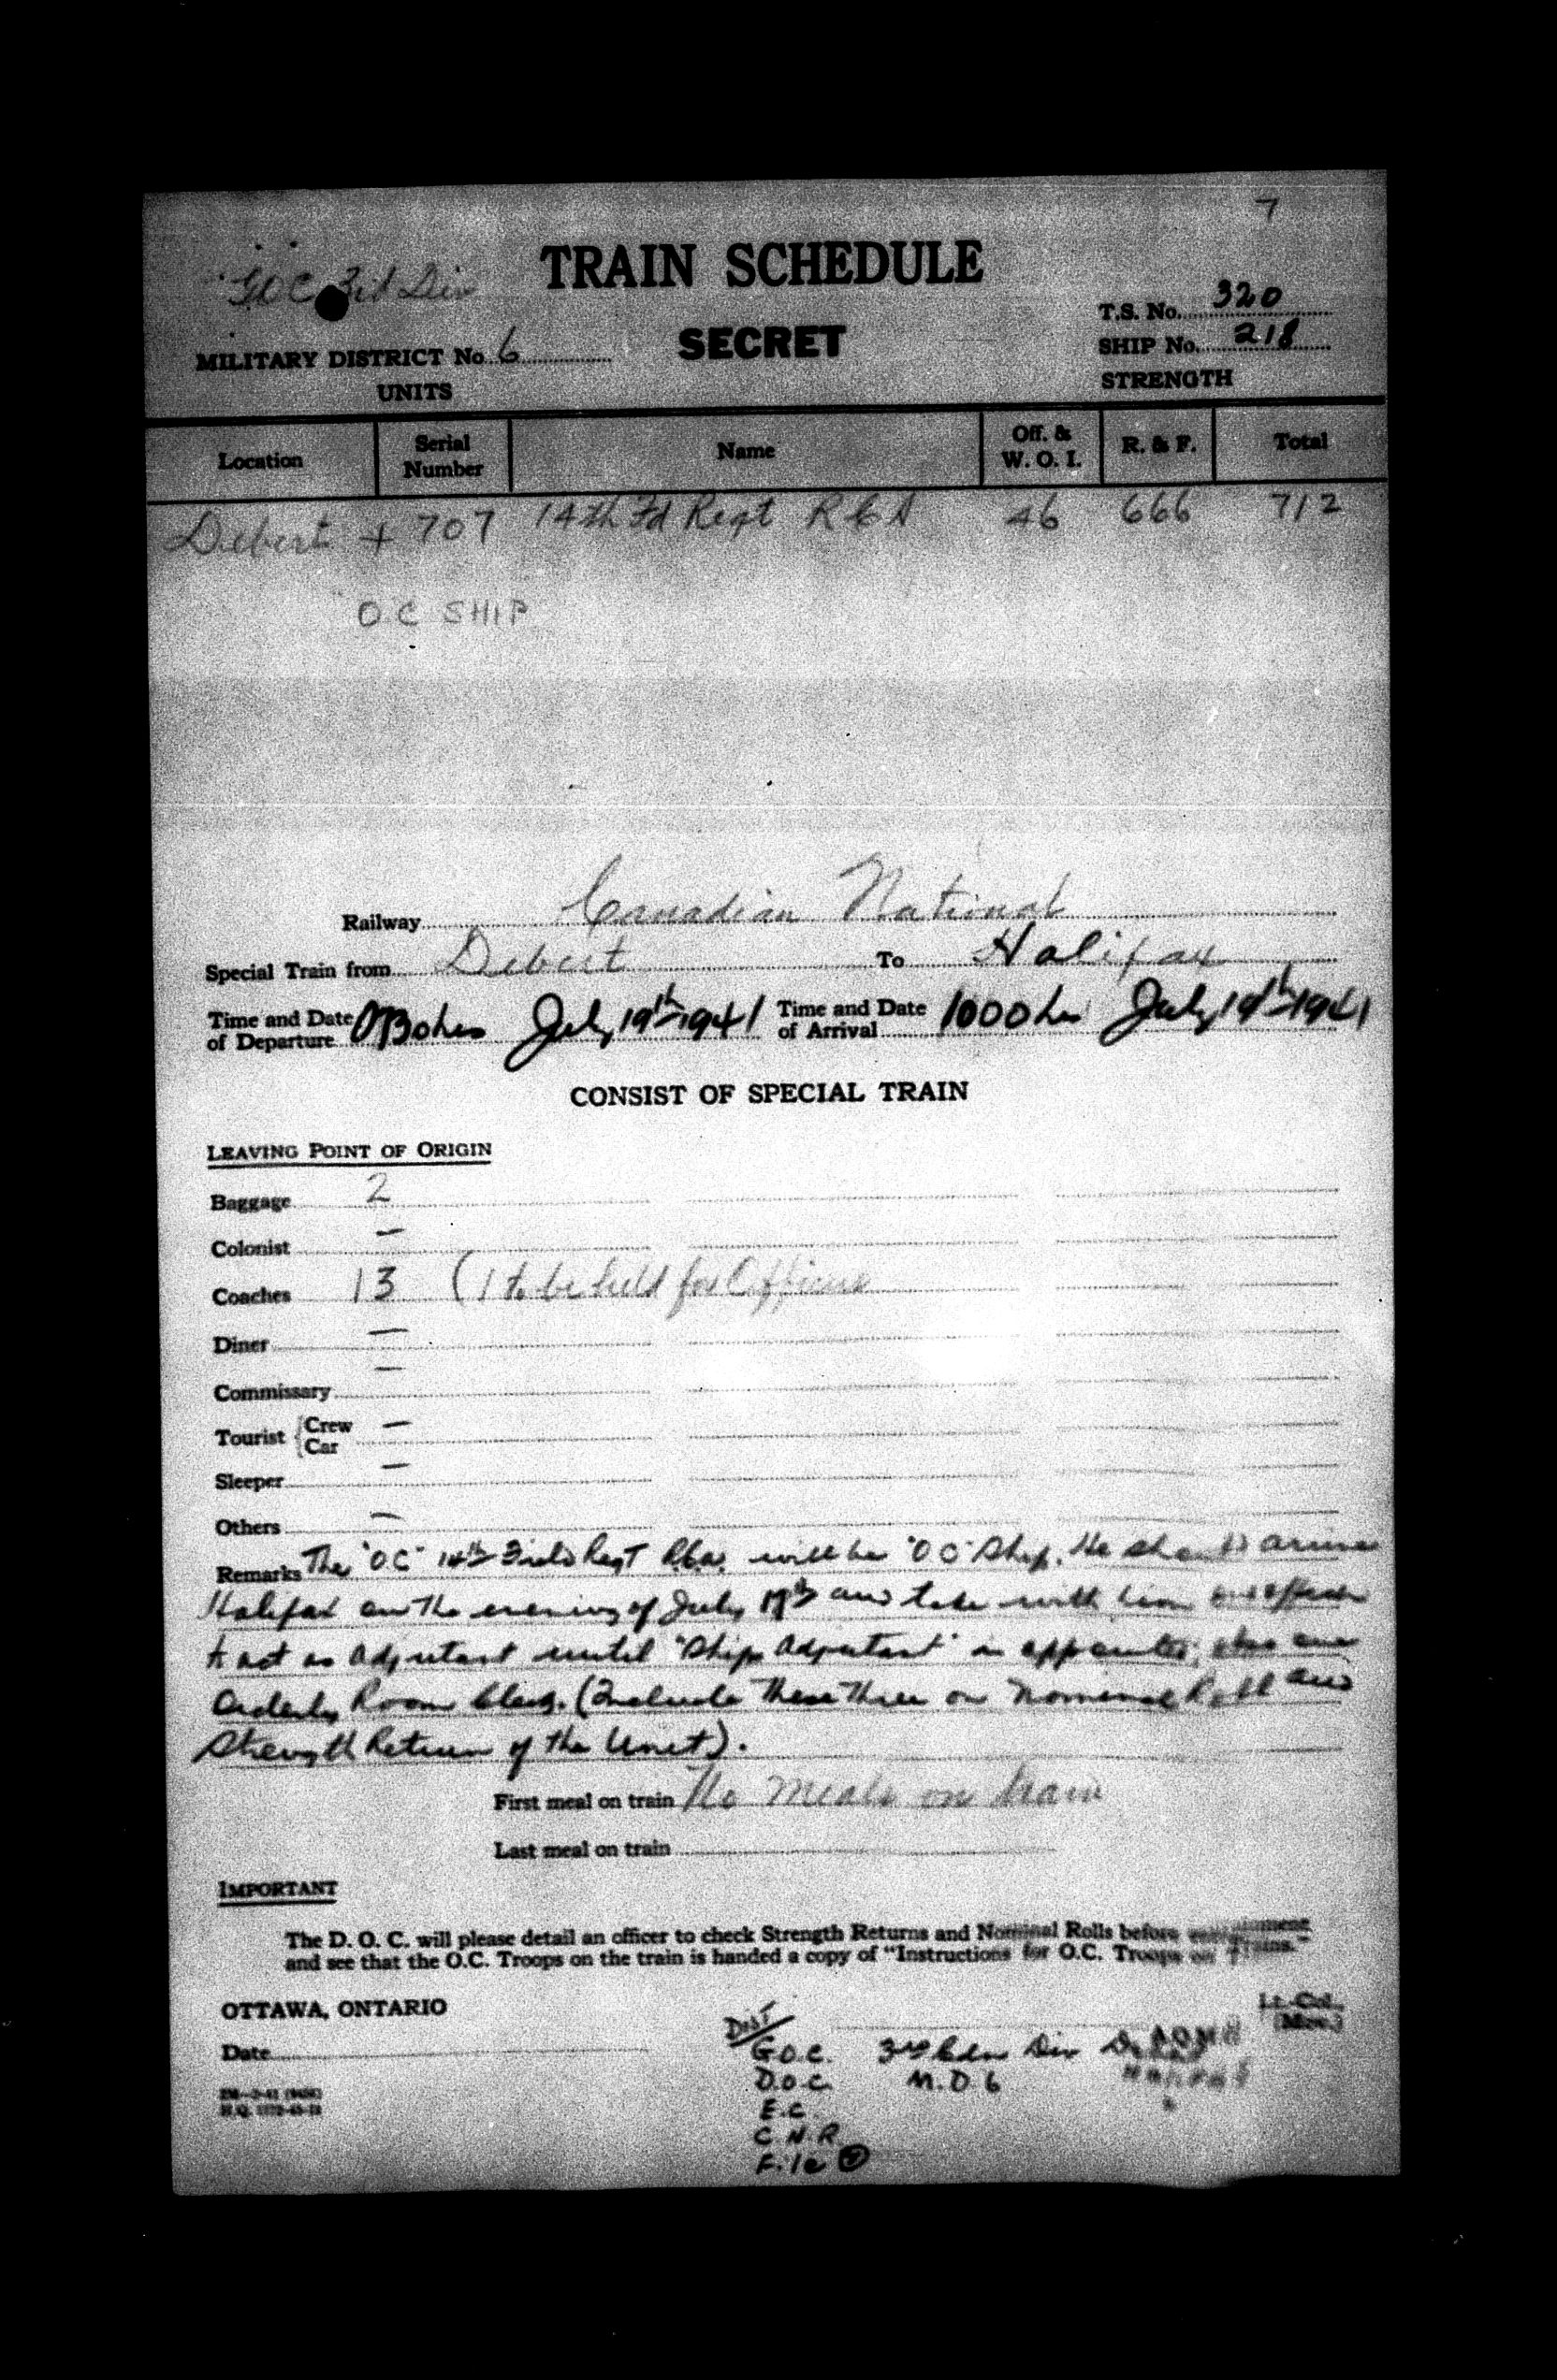 7
TRAIN SCHEDULE
GOC 3rd Div
T.S. No. 320
SECRET
SHIP No. 218
MILITARY DISTRICT No. 6
UNITS
STRENGTH
Location Serial Number Name Off. & W. O. I. R. & F. Total
Debert + 707 14th Fd Regt R C A 46 666 712
O.C SHIP
Railway Canadian National
Special Train from Debert To Halifax
Time and Date of Departure July 19th 1941 Time and Date of Arrival 1000 hrs July 19th 1941
CONSIST OF SPECIAL TRAIN
LEAVING POINT OF ORIGIN
Baggage 2
Colonist —
Coaches 13 (1 to be held for Officers
Diner —
Commissary —
Tourist { Crew Car —
Sleeper —
Others —
Remarks The "OC" 14th Field Regt RCA. will be "OC" Ship. He should arrive
Halifax on the evening of July and take with him one officer
to act as Adjutant until "Ships Adjutant" is appointed; also one
Orderly Room Clerk. (Include these three on Nominal Roll and
Strength Return of the Unit).
First meal on train No meals on train
Last meal on train
IMPORTANT
The D. O. C. will please detail an officer to check Strength Returns and Nominal Rolls before
and see that the O.C. Troops on the train is handed a copy of "Instructions for O.C. Troops on Trains."
OTTAWA, ONTARIO
Lt.-Col.
(Mov.)
Date
Dist
G.O.C. 3rd Cdn Div Debert
D.O.C. M.D. 6
E.C.
C.N.R.
File